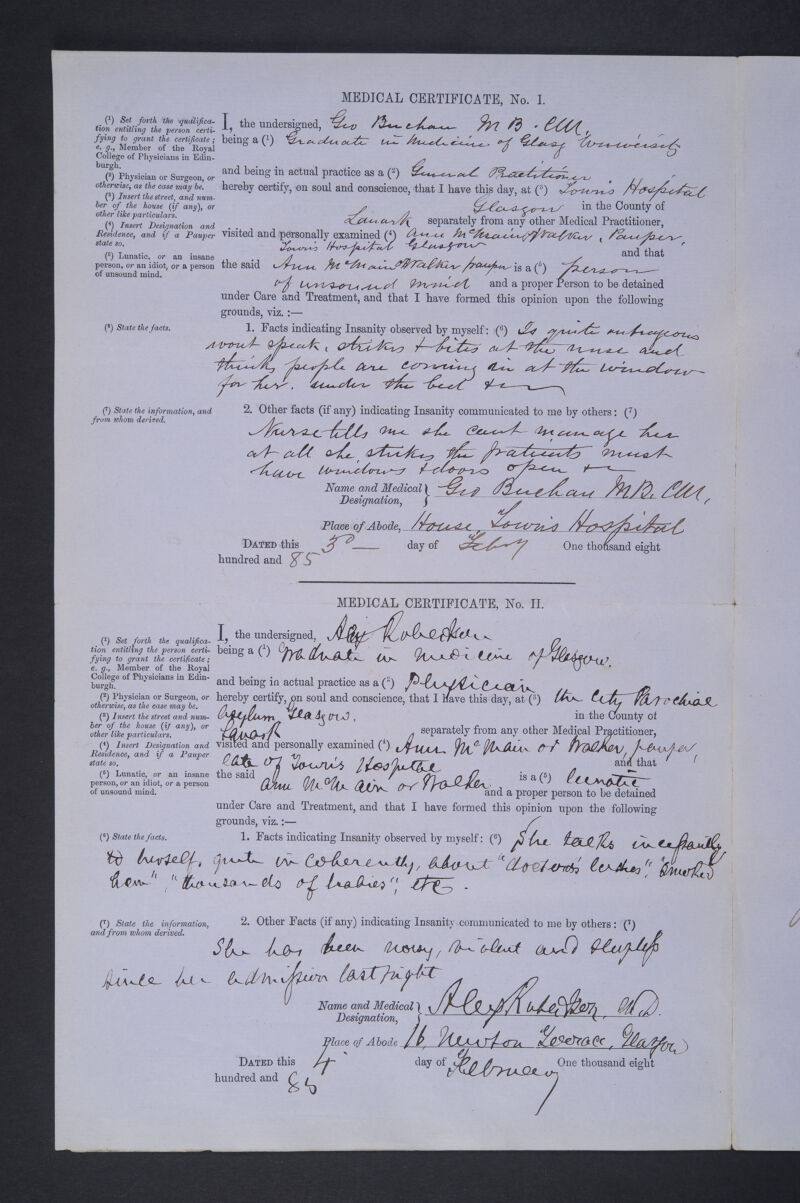 MEDICAL CERTIFICATE, No. I.
(1) Set forth the qualifica-
tion entitling the person certi-
fying to grant the certificate;
e. g., Member of the Royal
College of Physicians in Edin-
burgh.
(2) Physician or Surgeon, or
otherwise, as the case may be.
(3) Insert the street, and num-
ber of the house (if any), or
other like particulars.
(4) Insert Designation and
Residence, and if a Pauper
state so.
(5) Lunatic, or an insane
person, or an idiot, or a person
of unsound mind.
I, the undersigned, Geo Buchan M B. CM,
being a (1) Graduate in Medicine of Glasg University
and being in actual practice as a (2) General Practitioner
hereby certify, on soul and conscience, that I have this day, at (3) Towns Hospital
Glasgow in the County of
Lanark separately from any other Medical Practitioner,
visited and personally examined (4) Ann McMain or Walker, Pauper,
Towns Hospital Glasgow and that
the said Ann McMain or Walker pauper is a (5) person
of unsound mind and a proper Person to be detained
under Care and Treatment, and that I have formed this opinion upon the following
grounds, viz. :—
(6) State the facts.
1. Facts indicating Insanity observed by myself: (6) Is quite outrageous
wont speak, strikes & bites at the nurse and
thinks people are coming in at the window
for her. under the bed &c
(7) State the information, and
from whom derived.
2. Other facts (if any) indicating Insanity communicated to me by others: (7)
Nurse tells me she cant manage her
at all she strikes the patients must
have windows & doors open &c
Name and Medical Designation, Geo Buchan MB. CM,
Place of Abode, House, Towns Hospital
DATED this 3d day of Feby One thousand eight
hundred and 85
MEDICAL CERTIFICATE, No. II.
(1) Set forth the qualifica-
tion entitling the person certi-
fying to grant the certificate;
e. g., Member of the Royal
College of Physicians in Edin-
burgh.
(2) Physician or Surgeon, or
otherwise, as the case may be.
(3) Insert the street and num-
ber of the house (if any), or
other like particulars.
(4) Insert Designation and
Residence, and if a Pauper
state so.
(5) Lunatic, or an insane
person, or an idiot, or a person
of unsound mind.
I, the undersigned, Alex Robertson
being a (1) Graduate in medicine of Glasgow,
and being in actual practice as a (2) Physician
hereby certify, on soul and conscience, that I have this day, at (3) the City Parochial
Asylum, Glasgow. in the County of
Lanark separately from any other Medical Practitioner,
visited and personally examined (4) Ann McMain or Walker, pauper,
late of Towns Hospital and that
the said Ann McMain or Walker is a (5) lunatic
and a proper person to be detained
under Care and Treatment, and that I have formed this opinion upon the following
grounds, viz. :—
(6) State the facts.
1. Facts indicating Insanity observed by myself: (6) She talks incessantly
to herself, quite incoherently, about "doctors", "smoked
ham", "thousands of babies", etc.
(7) State the information,
and from whom derived.
2. Other Facts (if any) indicating Insanity communicated to me by others: (7)
She has been noisy, violent and sleepless
since her admission last night
Name and Medical Designation, Alex Robertson, M.D.
Place of Abode 16, Newton Terrace, Glasgow
DATED this 4 day of February One thousand eight
hundred and 85